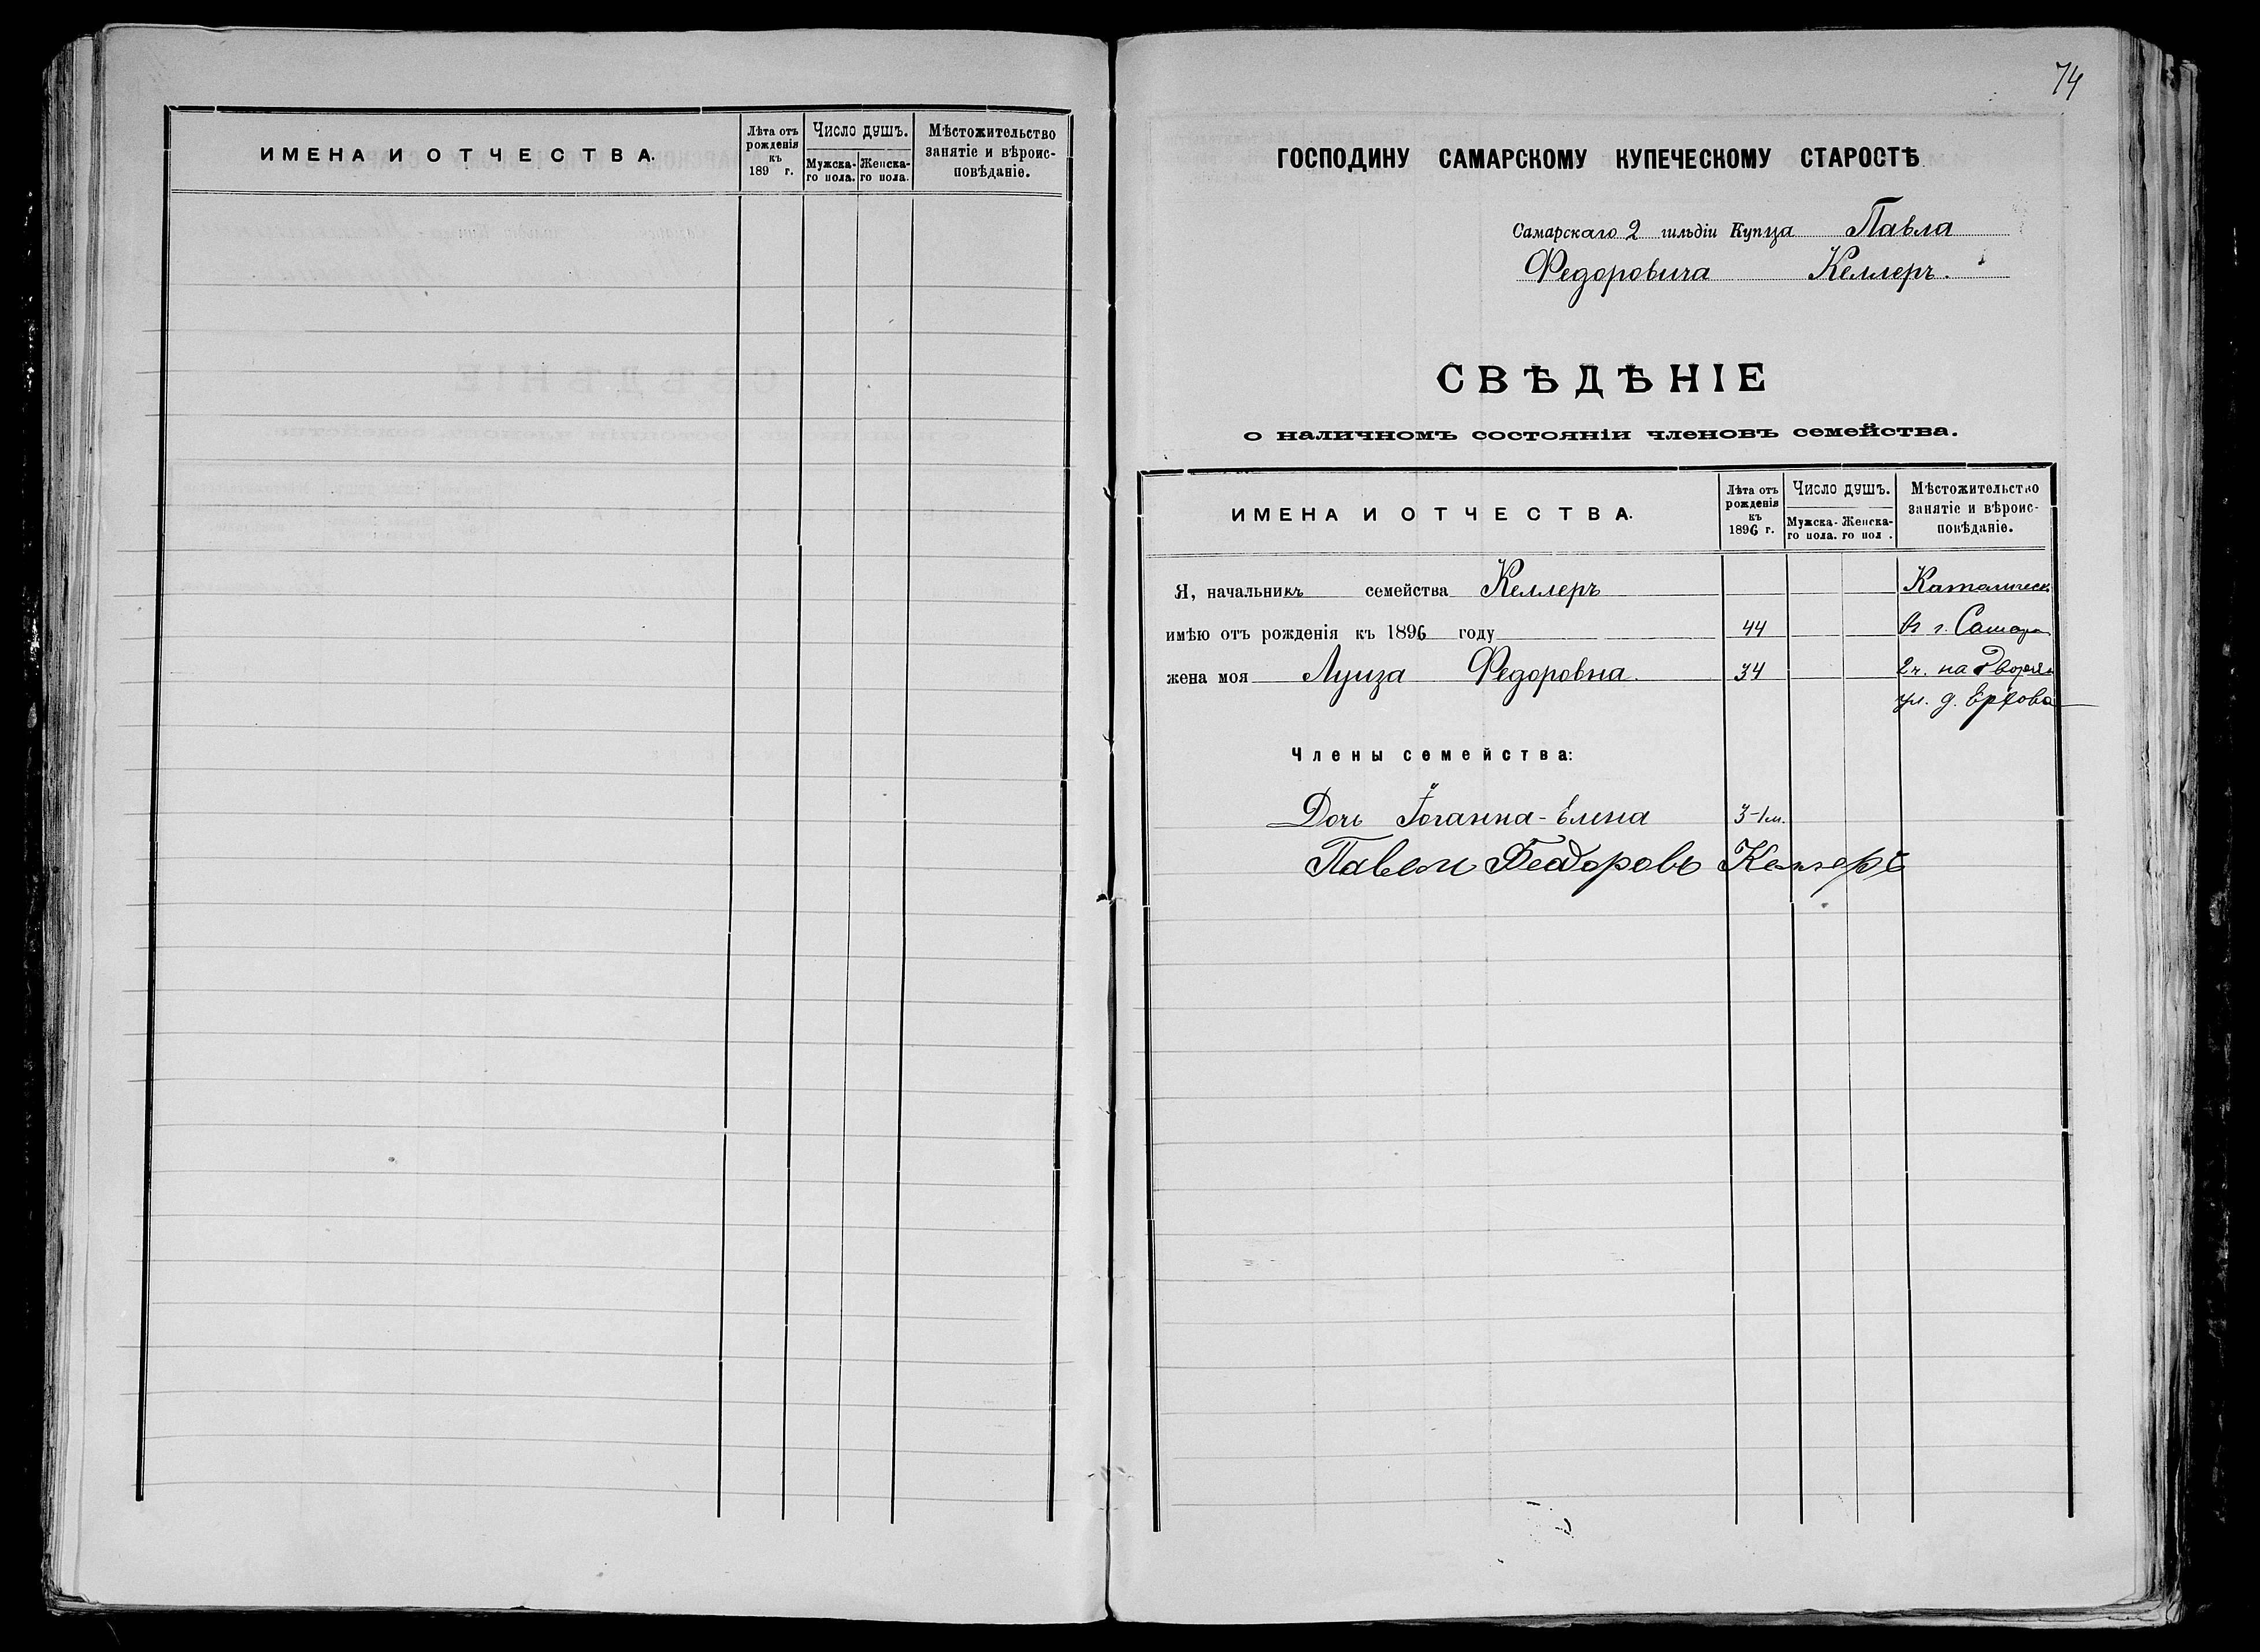 ИМЕНА И ОТЧЕСТВА.
Лѣта отъ рожденія къ 189 г.
Число душъ.
Мужска-го пола.
Женска-го пола.
Мѣстожительство занятіе и вѣроис-повѣданіе.
74
ГОСПОДИНУ САМАРСКОМУ КУПЕЧЕСКОМУ СТАРОСТѢ
Самарскаго 2 гильдіи Купца Павла
Федоровича Келлеръ.
СВѢДѢНІЕ
о наличномъ состояніи членовъ семейства.
ИМЕНА И ОТЧЕСТВА.
Лѣта отъ рожденія къ 1896 г.
Число душъ.
Мужска-го пола.
Женска-го пол .
Мѣстожительство занятіе и вѣроис-повѣданіе.
Я, начальникъ семейства Келлеръ Католическ.
имѣю отъ рожденія къ 1896 году 44 въ г. Самарѣ
жена моя Луиза Федоровна. 34 2 ч. на Дворян
ул. д.
Члены семейства:
Дочь Іоганна-Елена 3-1 м.
Павелъ Федоровъ Келлеръ